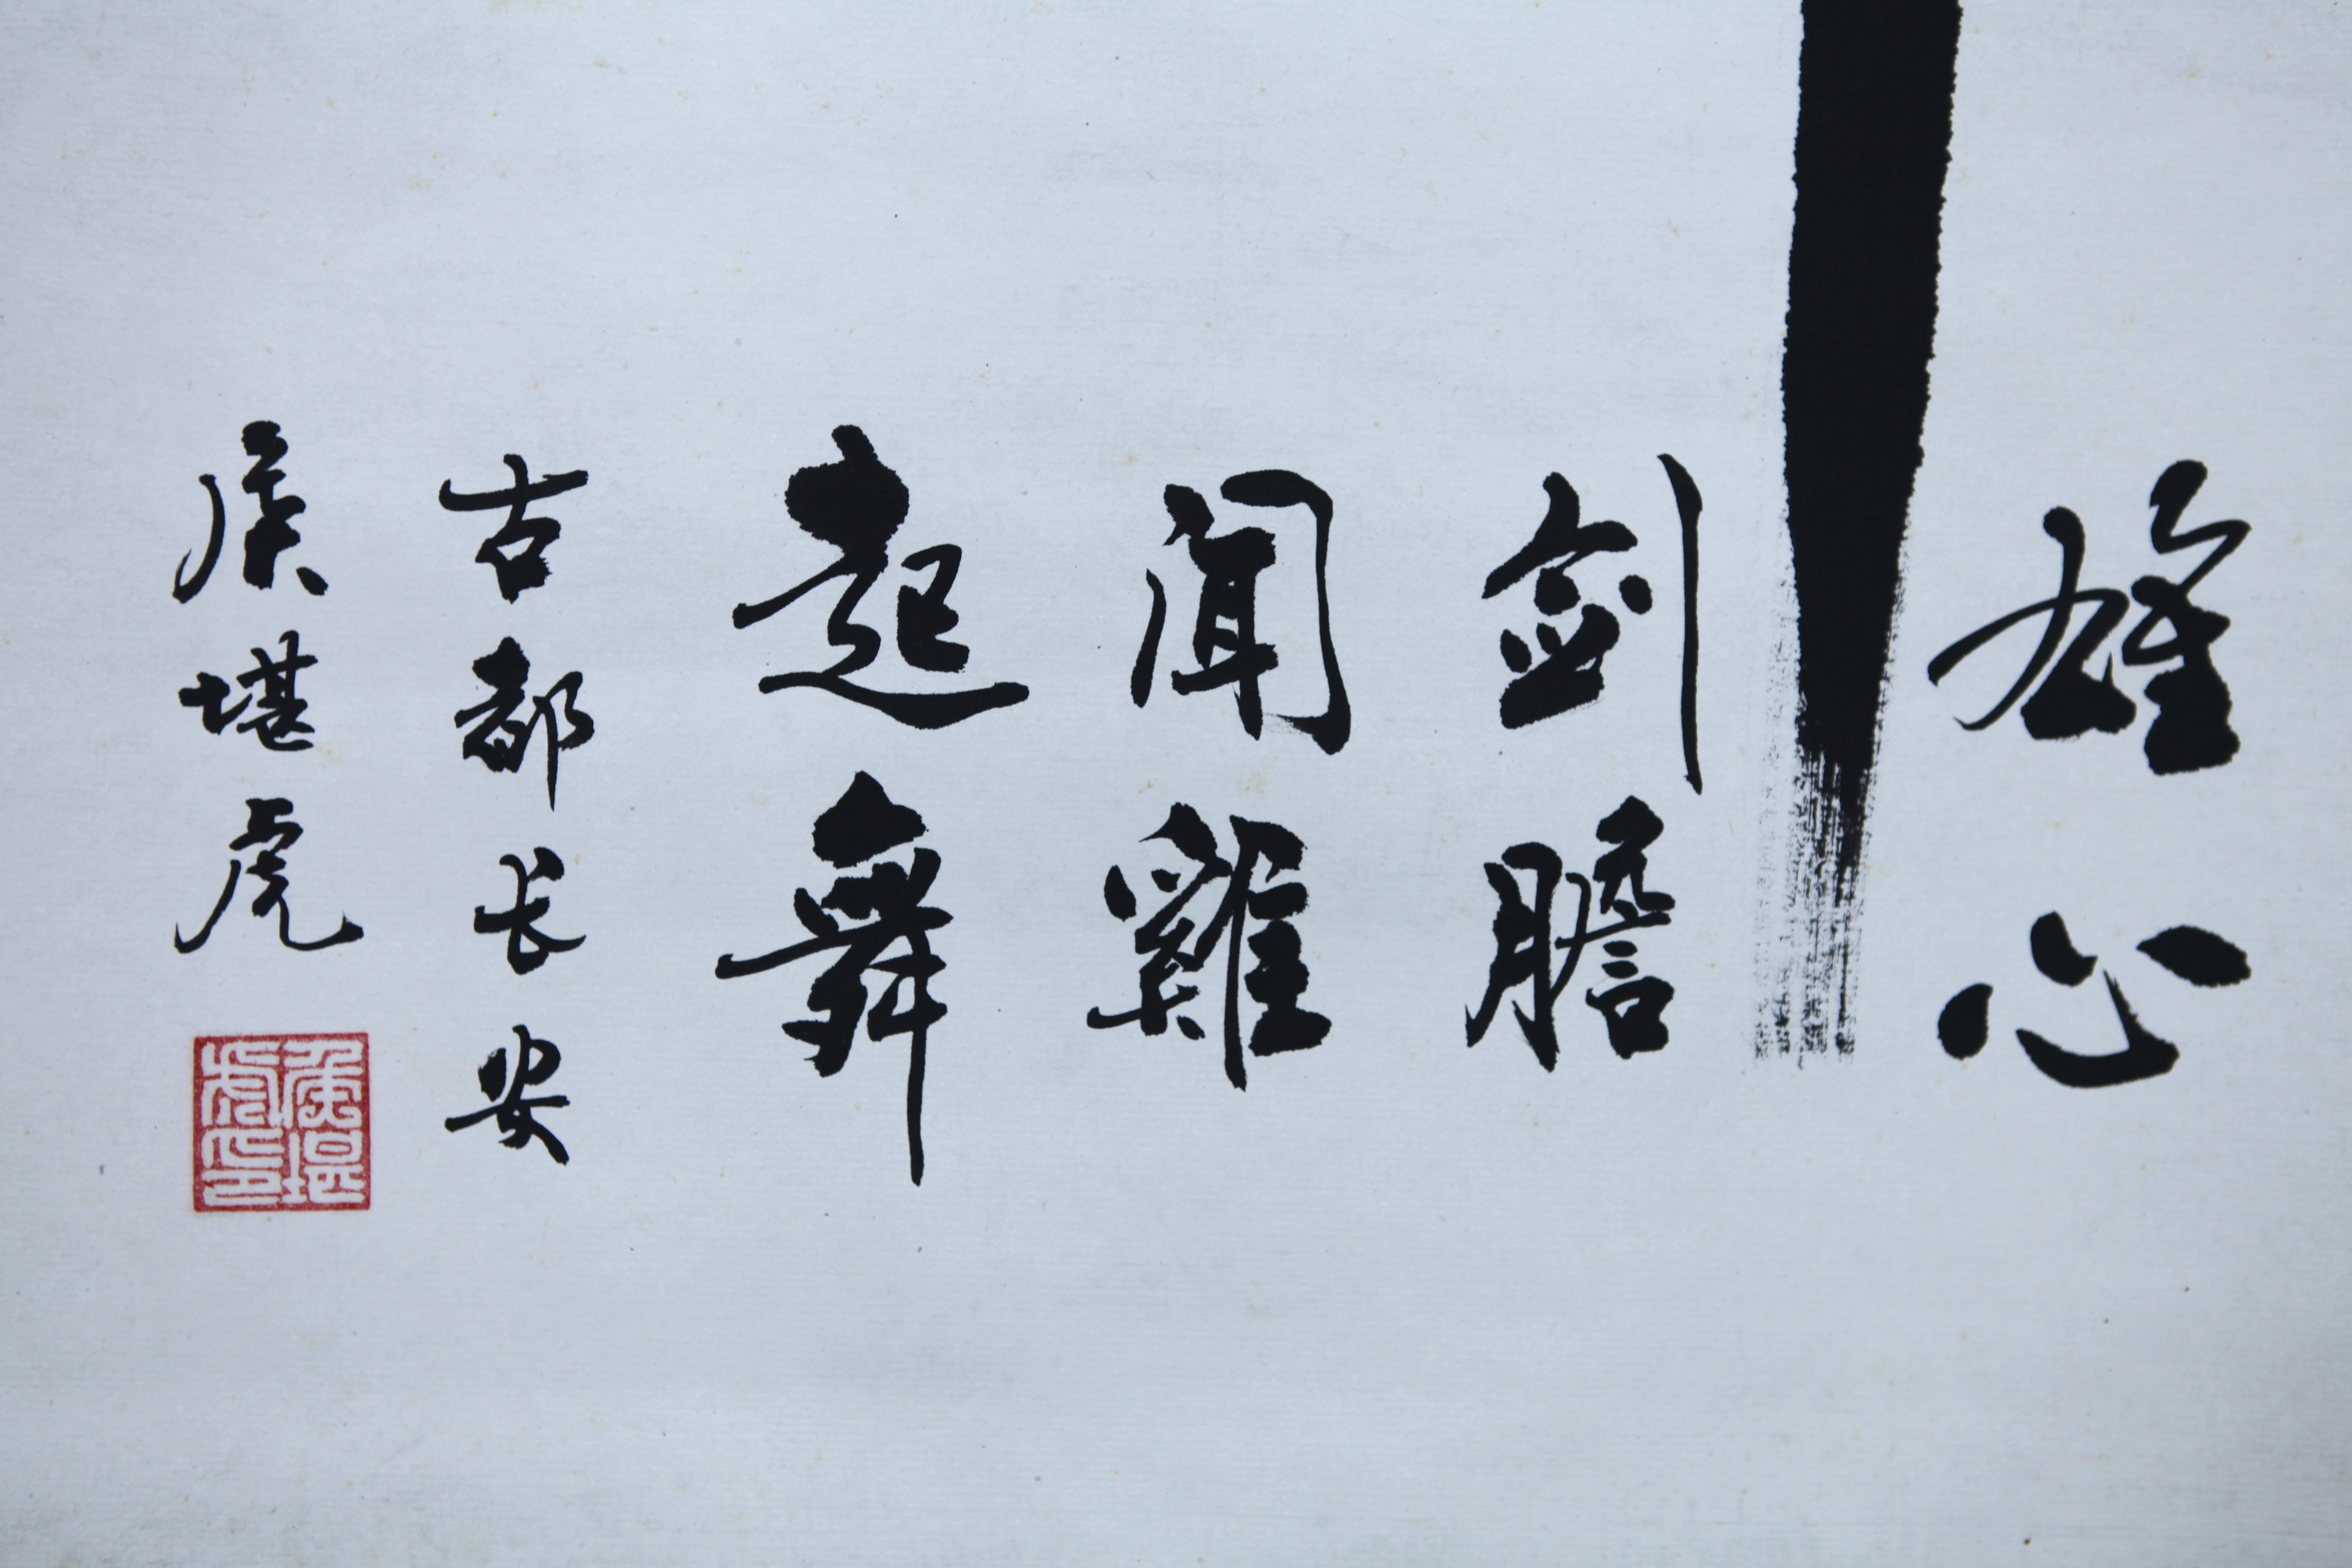 雄心
剑膽
闻雞
起舞
古都长安
侯堪虎
侯堪虎印